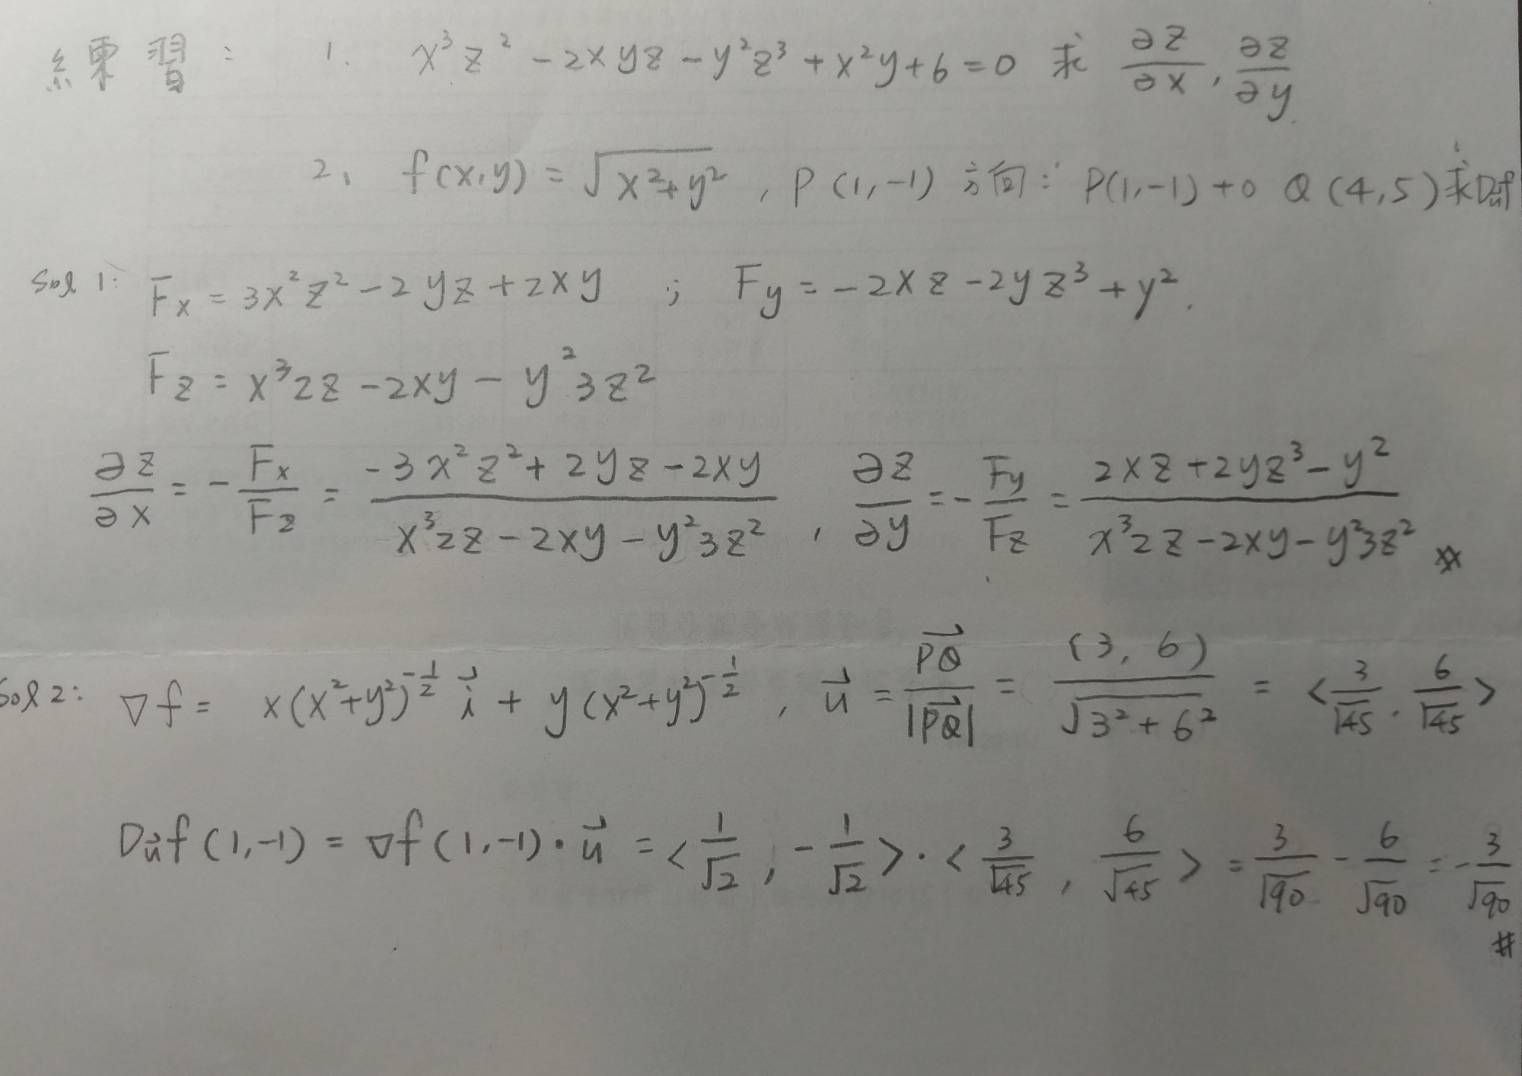 練習: 1. x³z² - 2xyz - y²z³ + x²y + 6 = 0 求 ∂z/∂x, ∂z/∂y
2、 f(x,y) = √(x²+y²), P(1,-1) 方向: P(1,-1) to Q(4,5) 求Duf
Sol 1: Fx = 3x²z² - 2yz + 2xy ; Fy = -2xz - 2yz³ + y².
Fz = x³2z - 2xy - y²3z²
∂z/∂x = - Fx/Fz = (-3x²z² + 2yz - 2xy)/(x³2z - 2xy - y²3z²), ∂z/∂y = - Fy/Fz = (2xz + 2yz³ - y²)/(x³2z - 2xy - y²3z²) ※
Sol 2: ∇f = x(x²+y²)^(-1/2) i⃗ + y(x²+y²)^(-1/2), u⃗ = PQ⃗/|PQ⃗| = (3, 6)/√(3²+6²) = <3/√45, 6/√45>
Du⃗f(1,-1) = ∇f(1,-1)·u⃗ = <1/√2, -1/√2>·<3/√45, 6/√45> = 3/√90 - 6/√90 = -3/√90 #